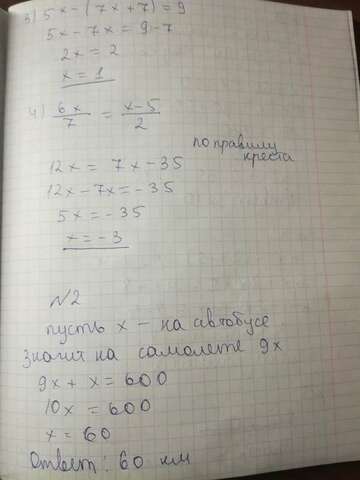 3) 5x - (7x + 7) = 9
5x - 7x = 9 - 7
2x = 2
x = 1
4) 6x/7 = x-5/2
по правилу
креста
12x = 7x - 35
12x - 7x = - 35
5x = - 35
x = - 3
N2
пусть x - на автобусе
значит на самолете 9x
9x + x = 600
10x = 600
x = 60
Ответ: 60 км